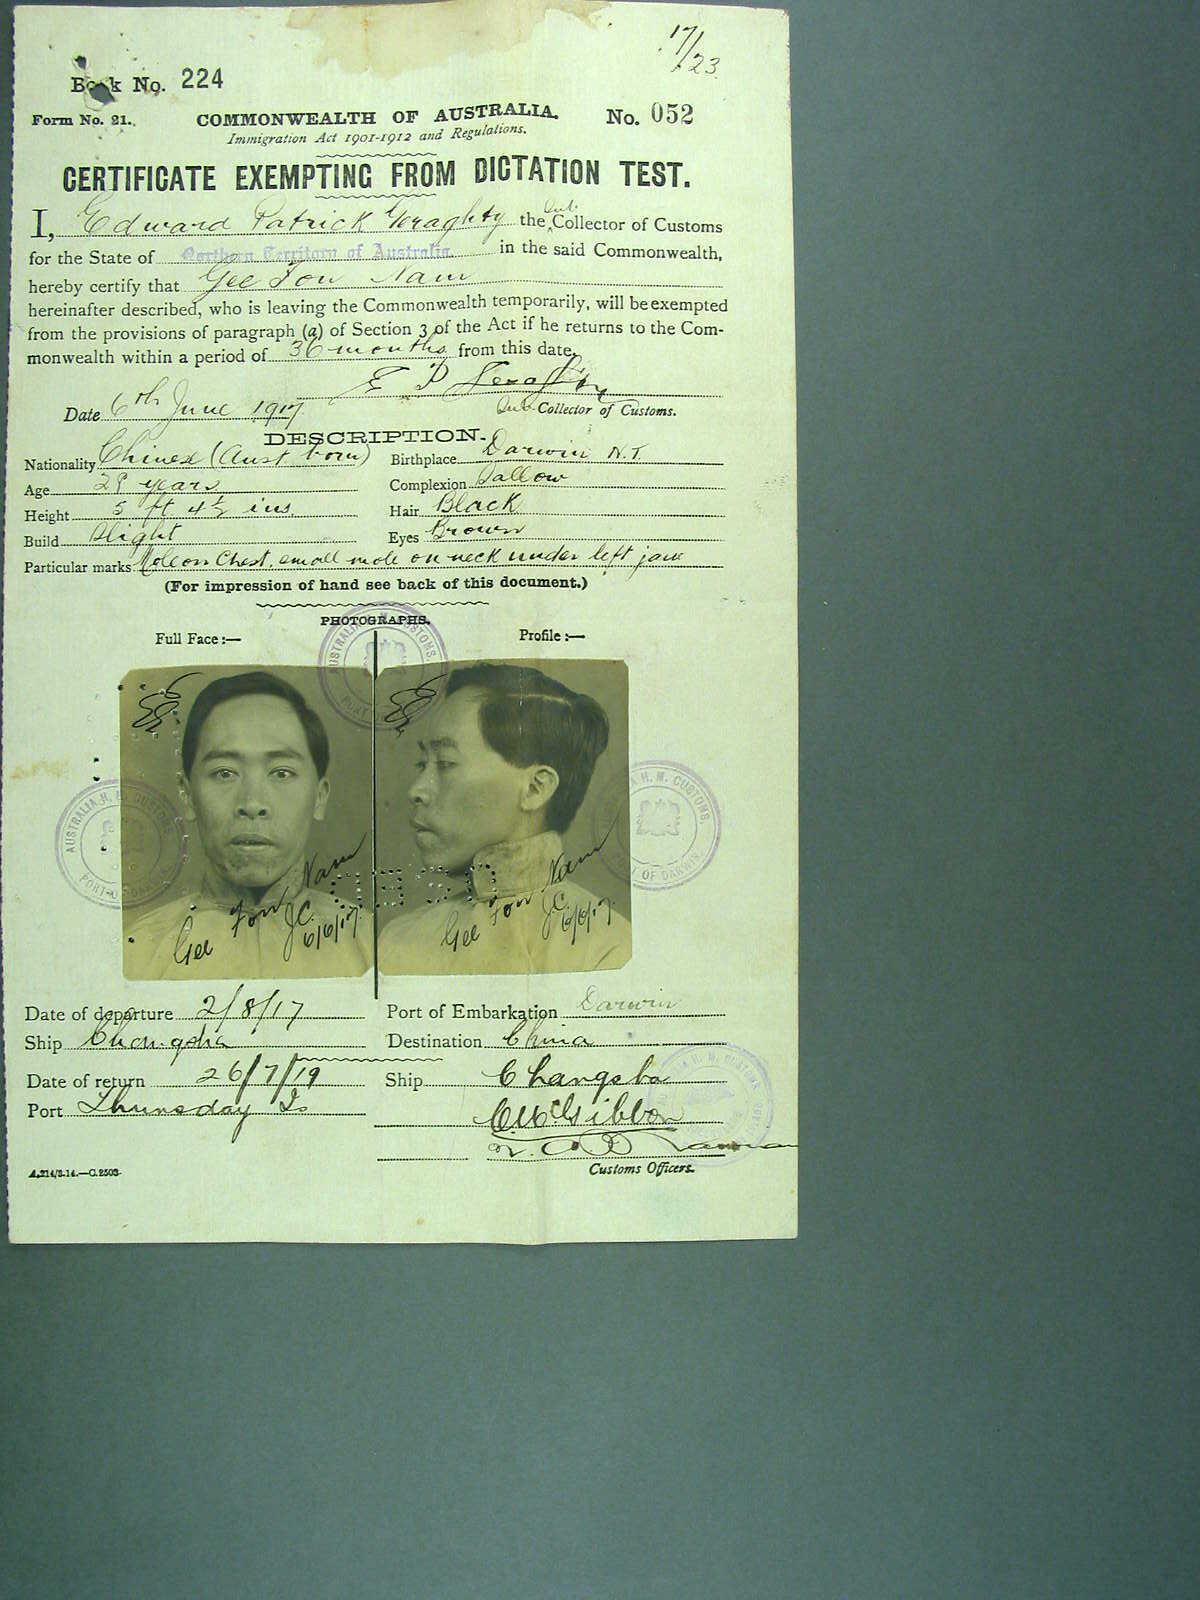 17/23
Book No. 224
Form No. 21. COMMONWEALTH OF AUSTRALIA. No. 052
Immigration Act 1901-1912 and Regulations.
CERTIFICATE EXEMPTING FROM DICTATION TEST.
I, Edward Patrick Geraghty the Sub Collector of Customs
for the State of Northern Territory of Australia. in the said Commonwealth,
hereby certify that Gee Fon Nam
hereinafter described, who is leaving the Commonwealth temporarily, will be exempted
from the provisions of paragraph (a) of Section 3 of the Act if he returns to the Com-
monwealth within a period of 36 months from this date.
E P Geraghty
Date 6th June 1917 Sub Collector of Customs.
DESCRIPTION.
Nationality Chinese (Aust born) Birthplace Darwin N.T.
Age 29 years Complexion Sallow
Height 5 ft 4½ ins Hair Black
Build Slight Eyes Brown
Particular marks Mole on Chest, small mole on neck under left jaw
(For impression of hand see back of this document.)
PHOTOGRAPHS.
Full Face :— Profile :—
AUSTRALIA H. M. CUSTOMS.
PORT OF DARWIN
AUSTRALIA H. M. CUSTOMS
PORT OF DARWIN
AUSTRALIA H. M. CUSTOMS.
PORT OF DARWIN.
Gee Fon Nam
J.C.
6/6/17
Gee Fon Nam
J.C.
6/6/17
Date of departure 2/8/17 Port of Embarkation Darwin
Ship Changsha Destination China
Date of return 26/7/19 Ship Changsha
Port Thursday Is
C McGibbon
Customs Officers.
A.214/3.14.—C.2503.